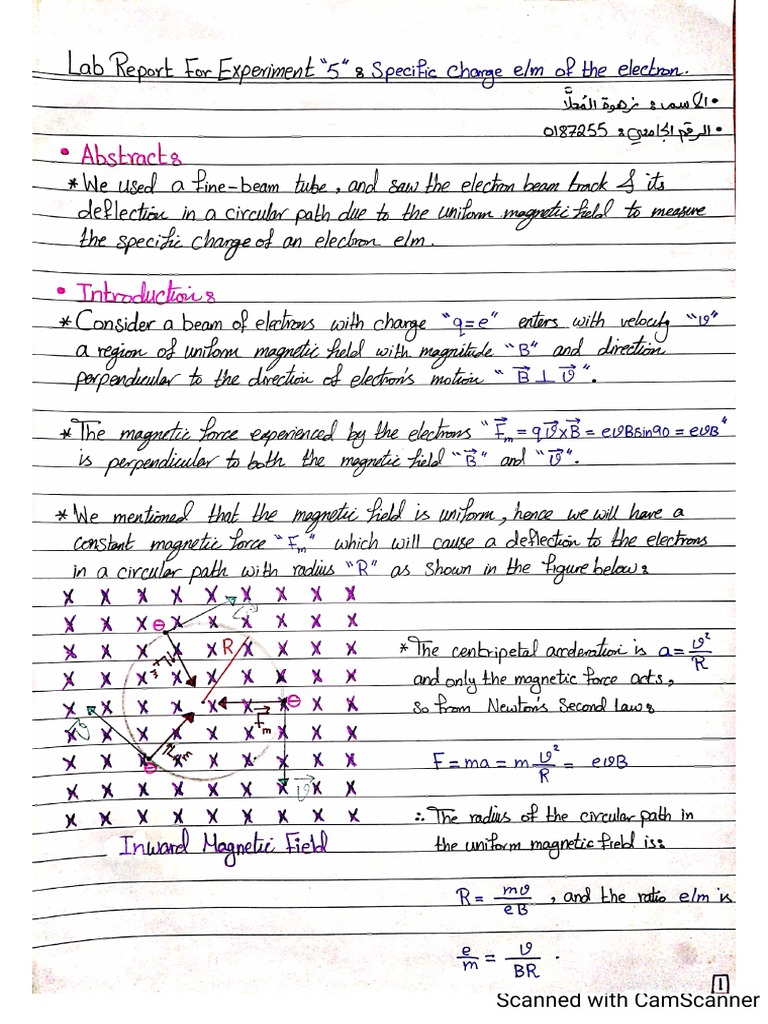 Lab Report For Experiment "5" : Specific Charge e/m of the electron.
• الاسم : زهوة المُحلَّا
• الرقم الجامعي : 0187255
• Abstract :
* We used a fine-beam tube, and saw the electron beam track & its
deflection in a circular path due to the uniform magnetic field to measure
the specific charge of an electron e/m.
• Introduction :
* Consider a beam of electrons with charge "q=e" enters with velocity "v"
a region of uniform magnetic field with magnitude "B" and direction
perpendicular to the direction of electron's motion "B⃗ ⊥ v⃗".
* The magnetic force experienced by the electrons "F⃗m = qv⃗xB⃗ = evBsin90 = evB"
is perpendicular to both the magnetic field "B⃗" and "v⃗".
* We mentioned that the magnetic field is uniform, hence we will have a
constant magnetic force "Fm" which will cause a deflection to the electrons
in a circular path with radius "R" as shown in the figure below :
x x x x x x x x x
x x x ⊖ x x x v⃗ x x x
x x x x x R x x x x
* The centripetal acceleration is a = v²/R
x x x F⃗m x x x x x x
and only the magnetic force acts,
x x x x x x x ⊖ x x
so from Newton's Second law :
v⃗ x x x x x x F⃗m x x x
F⃗m
x x x ⊖ x x x x x x
F = ma = m v²/R = evB
x x x x x x x v⃗ x x
x x x x x x x x x
∴ The radius of the circular path in
Inward Magnetic Field
the uniform magnetic field is :
R = mv/eB , and the ratio e/m is
e/m = v/BR .
1
Scanned with CamScanner